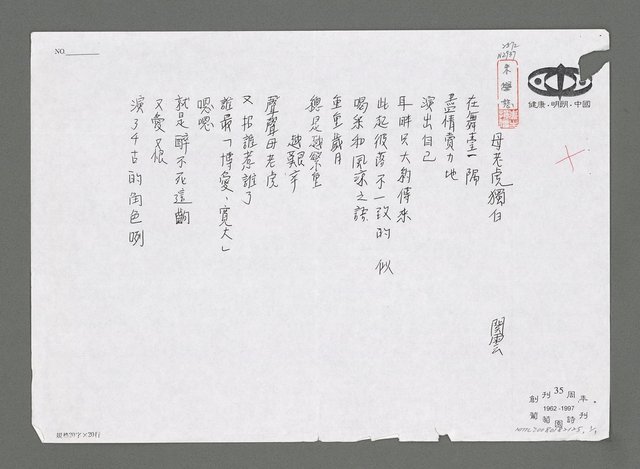 NO.
健康·明朗·中國
母老虎獨白
閑雲
在舞臺一隅
盡情賣力地
演出自己
耳畔只大約傳來
此起彼落不一致的 似
喝采和風涼之談
重重歲月
總是越繁重
越艱辛
聲聲母老虎
又招誰惹誰了
誰最「博愛、寬大」
嗯嗯
就是醉不死這齣
又愛又恨
演了千古的角色咧
創刊35周年
1962-1997
葡萄園詩刊
規格20字×20行